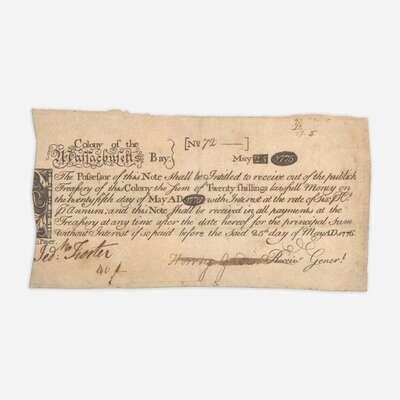 Colony of the
Massachusetts Bay.
[No 72 —]
May 25 1775
The Possessor of this Note Shall be Intitled to receive out of the publick
Treasury of this Colony the sum of Twenty shillings lawfull Money on
the twenty fifth day of May A.D. 1776 with Interest at the rate of Six
Annum, and this Note shall be received in all payments at the
Treasury at any time after the date hereof for the principal Sum
Without Interest if so paid before the Said 25th day of May A.D. 1776.
Foster
Henry Receiv. Gener.l